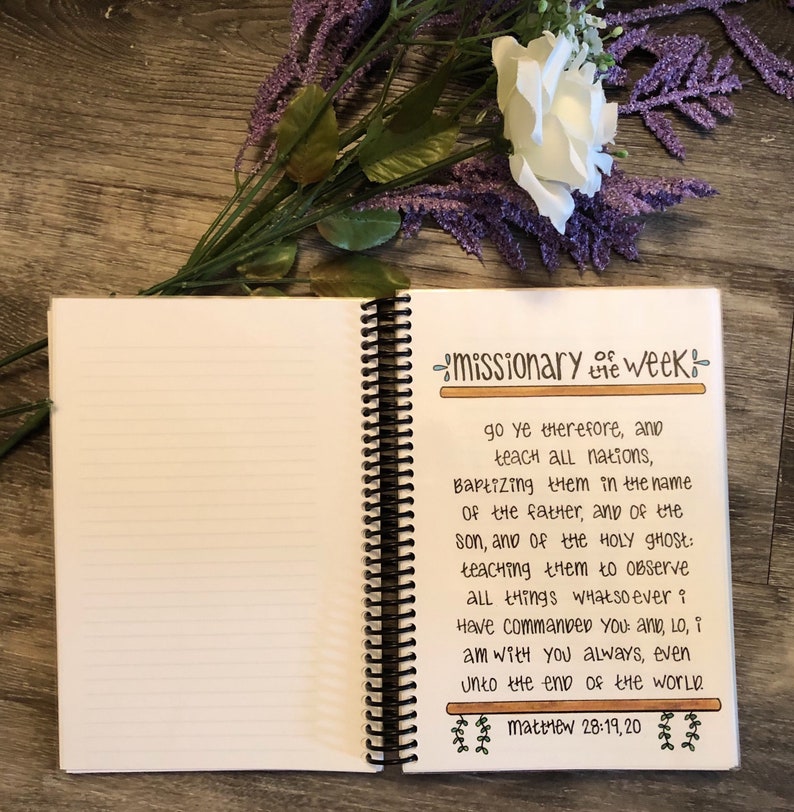 missionary of the week
go ye therefore, and
teach all nations,
Baptizing them in the name
of the father, and of the
son, and of the Holy Ghost:
teaching them to observe
all things whatsoever i
Have commanded you: and, lo, i
am with you always, even
unto the end of the world.
Matthew 28:19,20